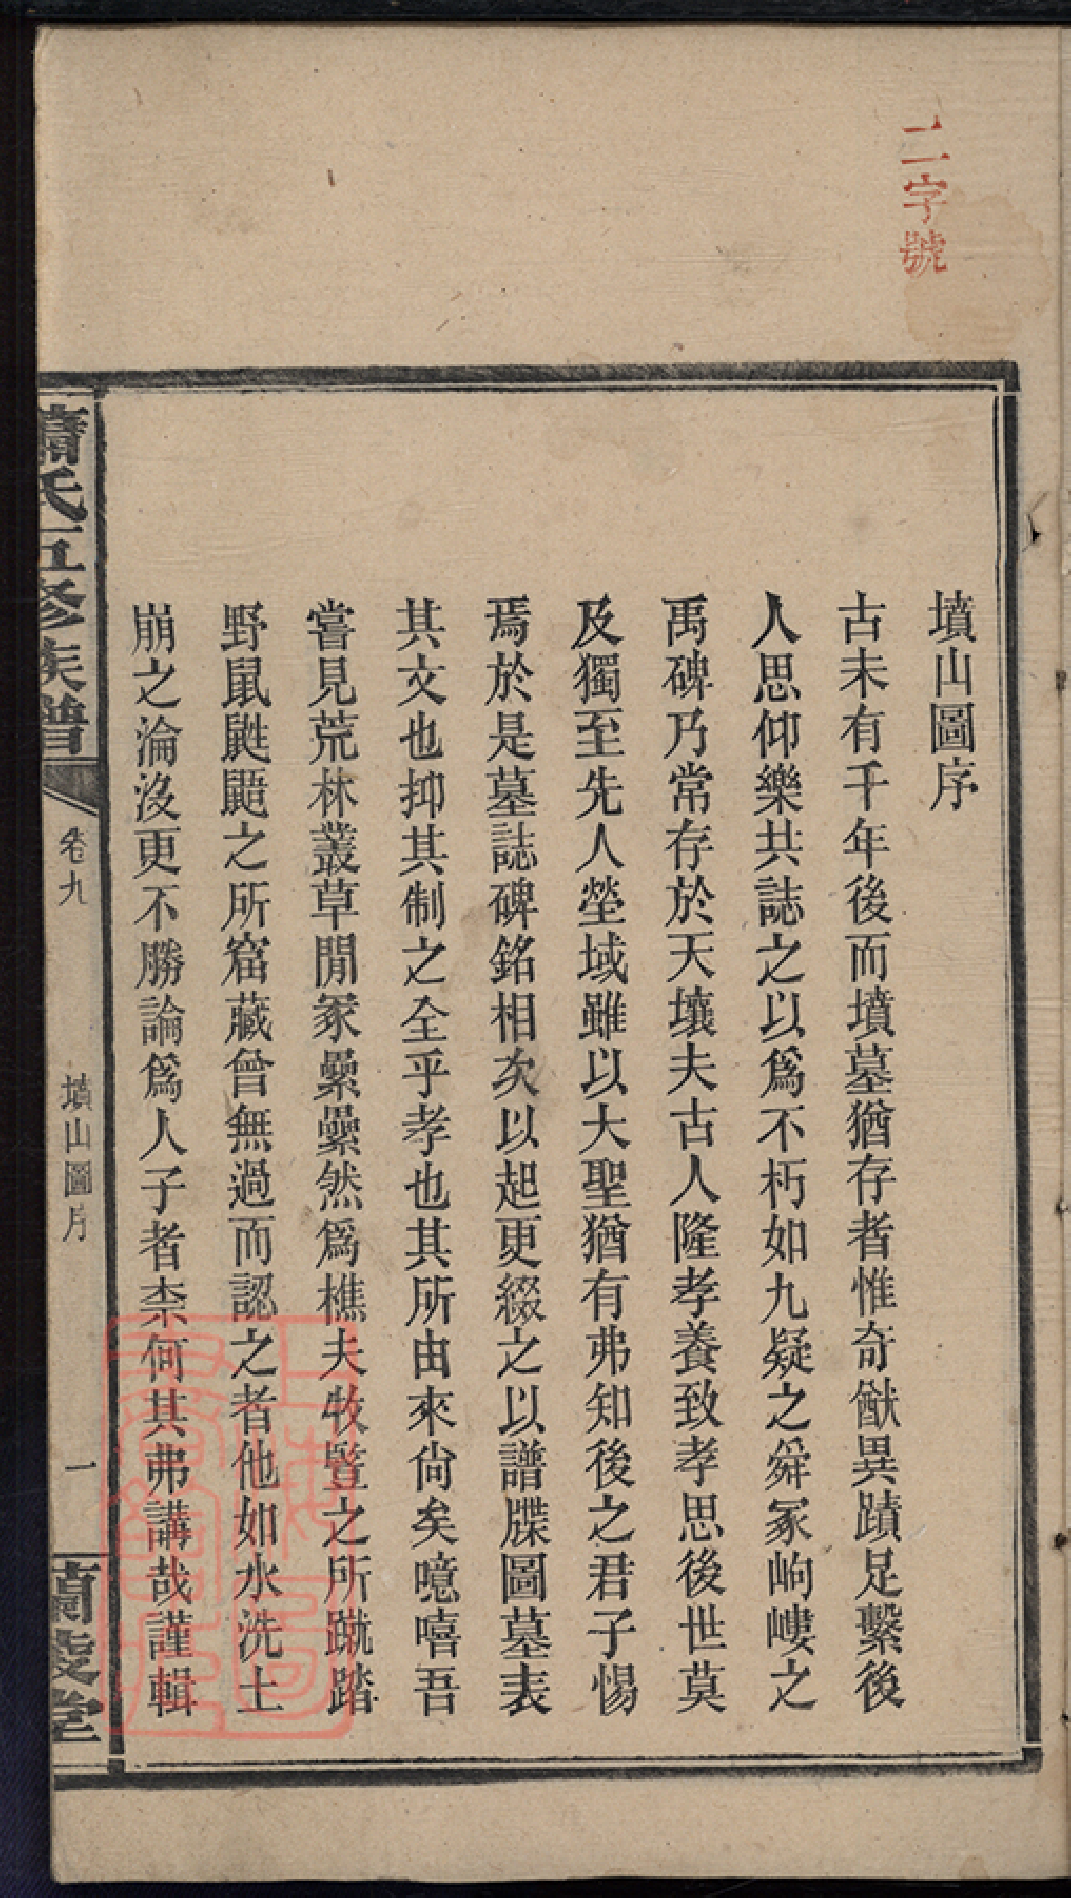 二字號
墳山圖序
古未有千年後而墳墓猶存者惟奇猷異蹟足繫後
人思仰樂共誌之以為不朽如九疑之舜冢岣嶁之
禹碑乃常存於天壤夫古人隆孝養致孝思後世莫
及獨至先人塋域雖以大聖猶有弗知後之君子惕
焉於是墓誌碑銘相矣以起更綴之以譜牒圖墓表
其文也抑其制之全乎孝也其所由來尙矣噫嘻吾
嘗見荒林叢草閒冢纍纍然爲樵夫牧豎之所蹴踏
野鼠鼪鼯之所窟藏曾無過而認之者他如水洗土
崩之淪沒更不勝論爲人子者柰何其弗講哉謹輯
蕭氏五修族譜
卷九
墳山圖
一
蘭陵堂
上海圖書館藏